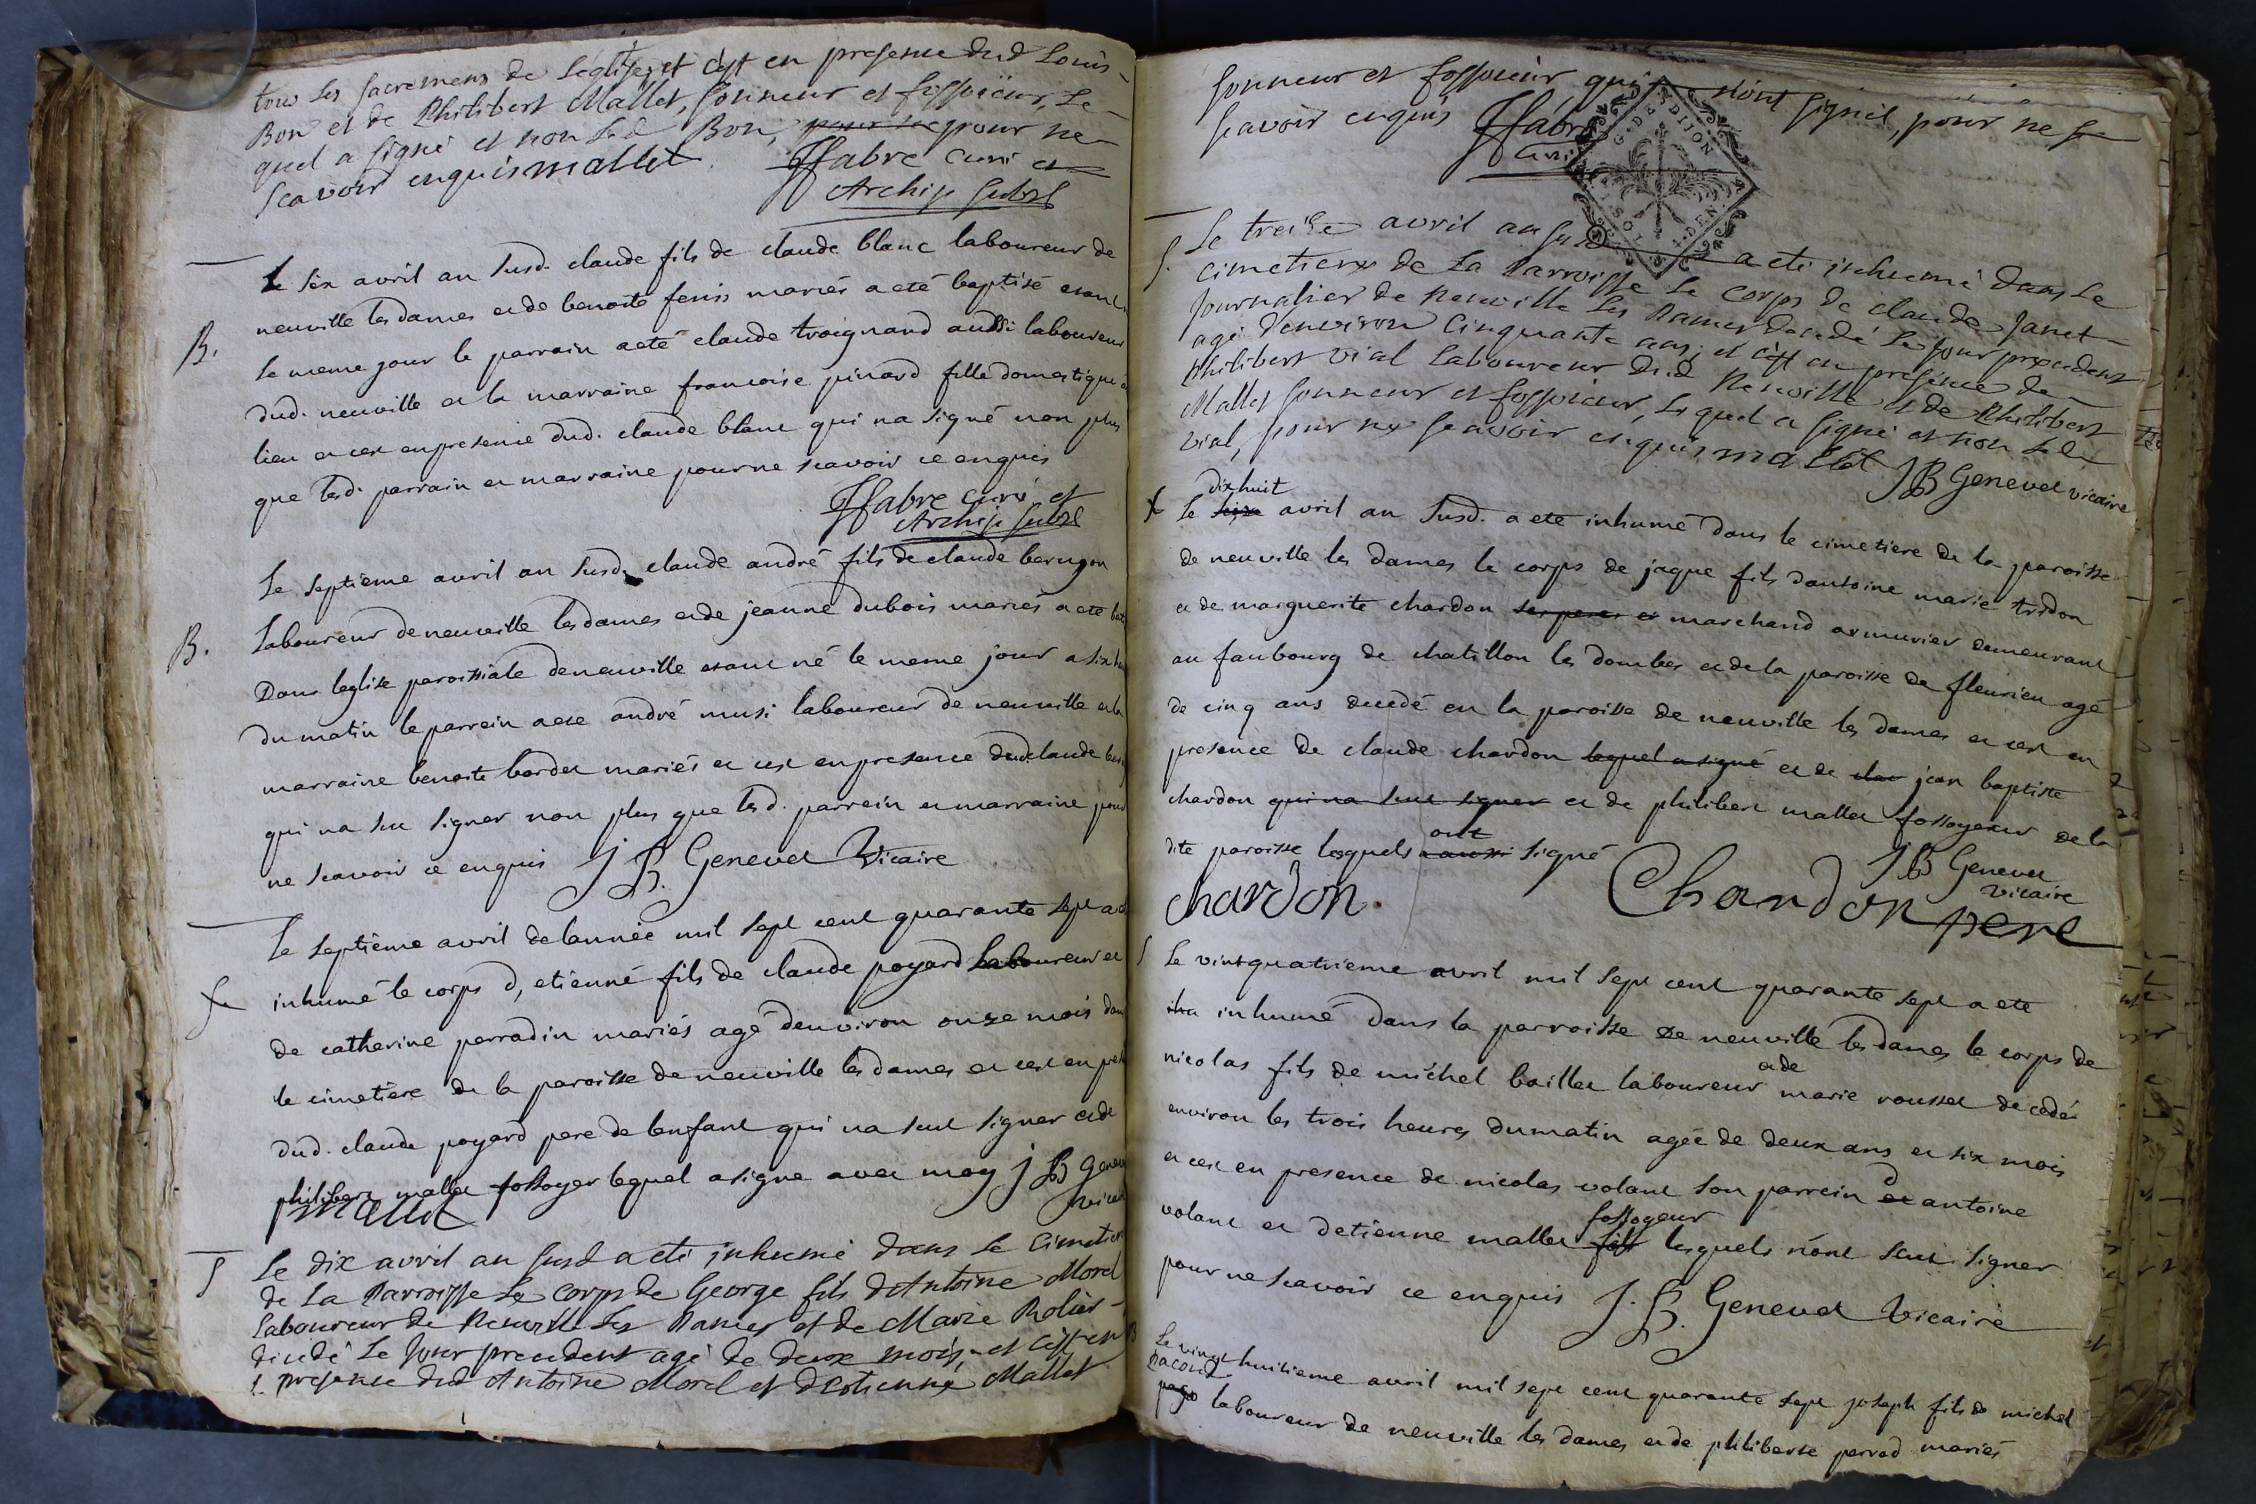 tous les sacremens de leglise, et c'est en presence dud Louis
Bon et de Philibert Mallet, sonneur et fossoieur, le
quel a signé et non led Bon, pour ne pour ne
scavoir enquis mallet. Ffabre curé et
Archip
Le six avril an susd. claude fils de claude blanc laboureur de
neuville les dames et de benoite ferris mariés a eté baptisé etant
B.
le meme jour le parrain a eté claude troignard aussi laboureur
dud. neuville et la marraine francoise pinard fille domestique
lieu et cest en presence dud. claude blanc qui na signé non plus
que lesd. parrain et marraine pour ne scavoir ce enquis
Ffabre curé et
Archip
Le septieme avril an susd. claude andré fils de claude barugon
B.
laboureur de neuville les dames et de jeanne dubois mariés a eté bat
Dans leglise paroissiale de neuville etant né le meme jour a six
du matin le parrein a ete andré musi laboureur de neuville et la
marraine benoite bordet mariés et cest en presence dud claude
qui na sceu signer non plus que lesd. parrein et marraine pour
ne scavoir ce enquis J B. Genevet Vicaire
Le septieme avril delannée mil sept cent quarante sept a
inhumé le corps d, etienne fils de claude poyard laboureur et
de catherine perradin mariés agé denviron onze mois dans
le cimetiere de la paroisse de neuville les dames et cest en pre
dud. claude poyard pere de lenfant qui na sceu signer et de
philibert mallet fossoyer lequel a signe avec moy j B Genev
mallet vicai
S
Le dix avril an susd a eté inhumé dans le cimetiere
de la Parroisse le corps de George fils d'Antoine Morel
Laboureur de Neuville les Dames et de Marie Rolier
décédé le jour precedent agé de deux mois, et c'est en
presence dud Antoine Morel et d'estienne Mallet
sonneur et fossoieur, qui n'ont signé, pour ne
scavoir enquis Ffabre
curé
G. DE DIJON
SOL
DEN.
S.
Le treize avril an susd a eté inhumé dans le
cimetiere de la Parroisse le corps de claude Janet
Journalier de Neuville les Dames decedé le jour precedent
agé d'environ cinquante ans; et c'est en presence de
Philibert vial Laboureur dud Neuville et de Philibert
Mallet sonneur et fossoieur, lequel a signé et non led
vial, pour ne scavoir enquis mallet JB Genevet vicaire
dixhuit
Le avril an susd. a ete inhumé dans le cimetiere de la paroisse
de neuville les dames le corps de jaque fils dantoine marie tridon
et de marguerite chardon ses peres et marchand armurier demeurant
au faubourg de chatillon les dombes et de la paroisse de fleurieu agé
de cinq ans decedé en la paroisse de neuville les dames et cest en
presence de claude chardon lequel a signé et de clau jean baptiste
chardon qui na sceu signer et de philibert mallet fossoyeur de la
ont
dite paroisse lesquels a aussi signé J B Genevet
vicaire
chardon. Chardon pere
Le vintquatrieme avril mil sept cent quarante sept a ete
inhumé dans la parroisse de neuville les dames le corps de
et de
nicolas fils de michel baillet laboureur marie rousset decedé
environ les trois heures du matin agée de deux ans et six mois
et cest en presence de nicolas volant son parrein d antoine
fossoyeur
volant et detienne mallet fils lesquels n'ont sceu signer
pour ne scavoir ce enquis J. B. Genevet Vicaire
Le vingt huitieme avril mil sept cent quarante sept joseph fils de michel
pacoud
laboureur de neuville les dames et de philiberte perrad mariés